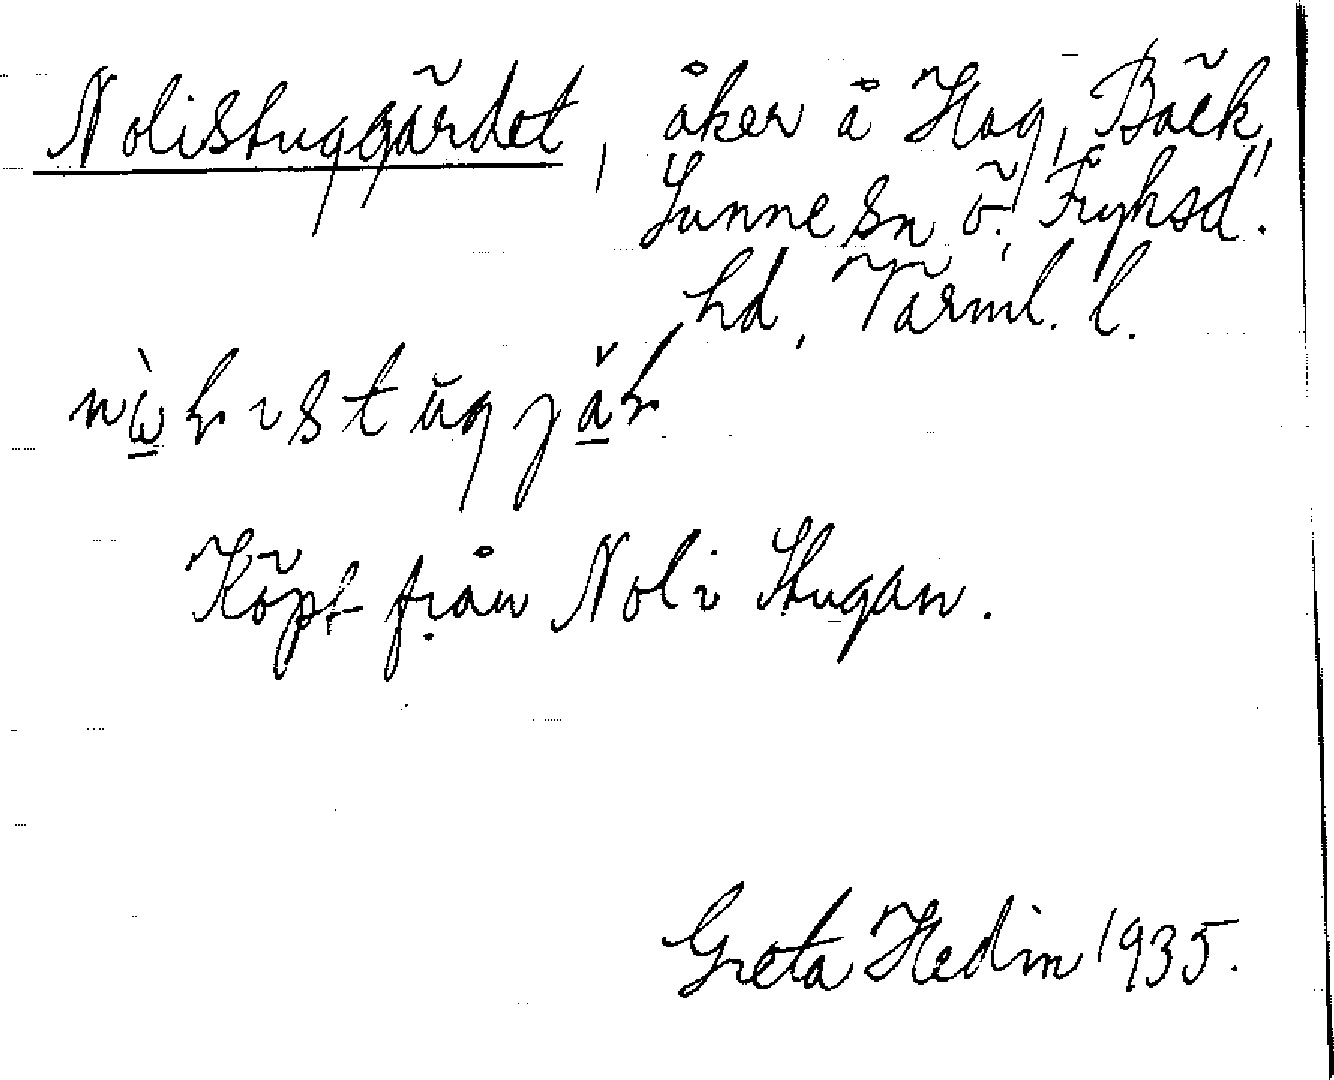 Nolistuggärdet, åker å Hag, Bäck,
Sunne sn ö. Fryksd.
hd, Värml. l.
Köpt från Nol i Stugan.
Greta Hedin 1935.